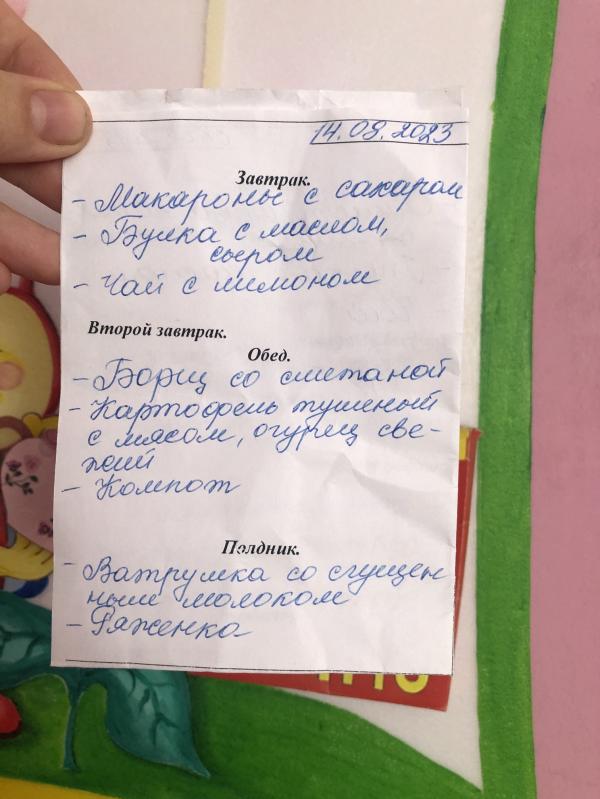 14.08.2023
Завтрак.
- Макароны с сахаром
- Булка с маслом,
сыром
- Чай с лимоном
Второй завтрак.
Обед.
- Борщ со сметаной
- Картофель тушеный
с мясом, огурец све-
жий
- Компот
Полдник.
- Ватрушка со сгущен
ным молоком
- Ряженка